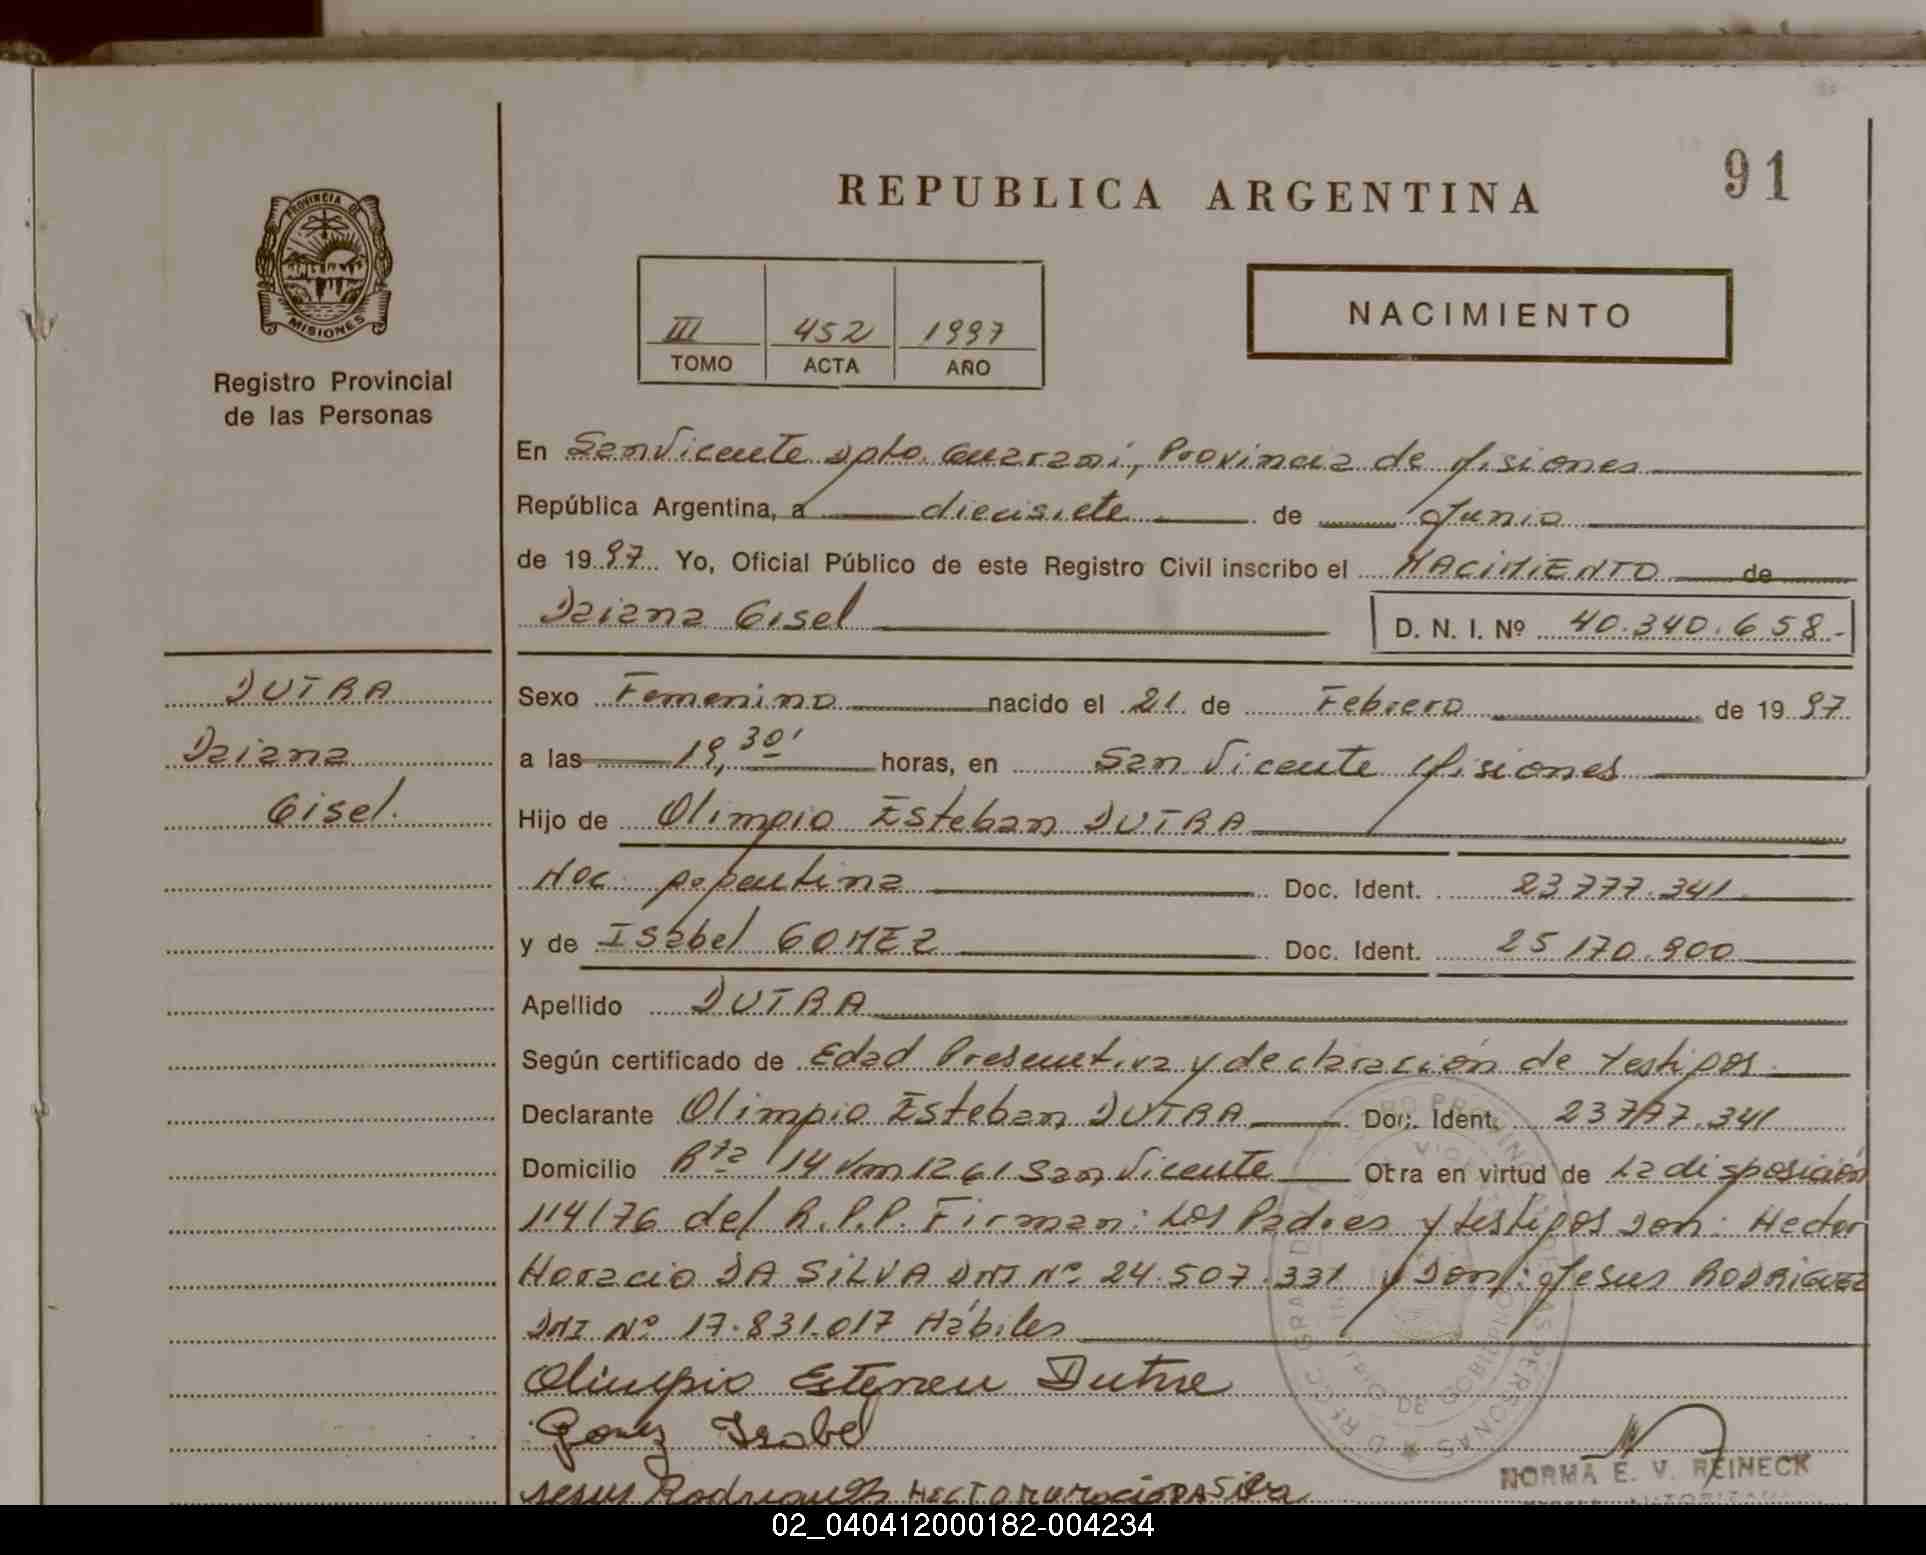 91
REPUBLICA ARGENTINA
PROVINCIA DE
MISIONES
Registro Provincial
de las Personas
III 452 1997
TOMO ACTA AÑO
NACIMIENTO
En San Vicente Dpto. Guarani, Provincia de Misiones
República Argentina, a diecisiete de Junio
de 19 97 Yo, Oficial Público de este Registro Civil inscribo el NACIMIENTO de
Daiana Gisel D. N. I. Nº 40.340.658.-
DUTRA
Daiana
Gisel.
Sexo Femenino nacido el 21 de Febrero de 19 97
a las 19,30' horas, en San Vicente Misiones
Hijo de Olimpio Esteban DUTRA
Nac. Argentina Doc. Ident. 23.777.341
y de Isabel GOMEZ Doc. Ident. 25.170.900
Apellido DUTRA
Según certificado de Edad Presuntiva y declaración de testigos
Declarante Olimpio Esteban DUTRA Doc. Ident. 23.777.341
Domicilio Rta 14 Km 1261 San Vicente Otra en virtud de La disposición
114/76 del R.P.P. Firman: Los Padres y testigos Don: Hector
Horacio DA SILVA DNI Nº 24.507.331 y Don: Jesus RODRIGUEZ
DNI Nº 17.831.017 Hábiles
Olimpio Dutre
Gomez Isabel
Jesus Rodriguez
NORMA E. V. REINECK
02_040412000182-004234